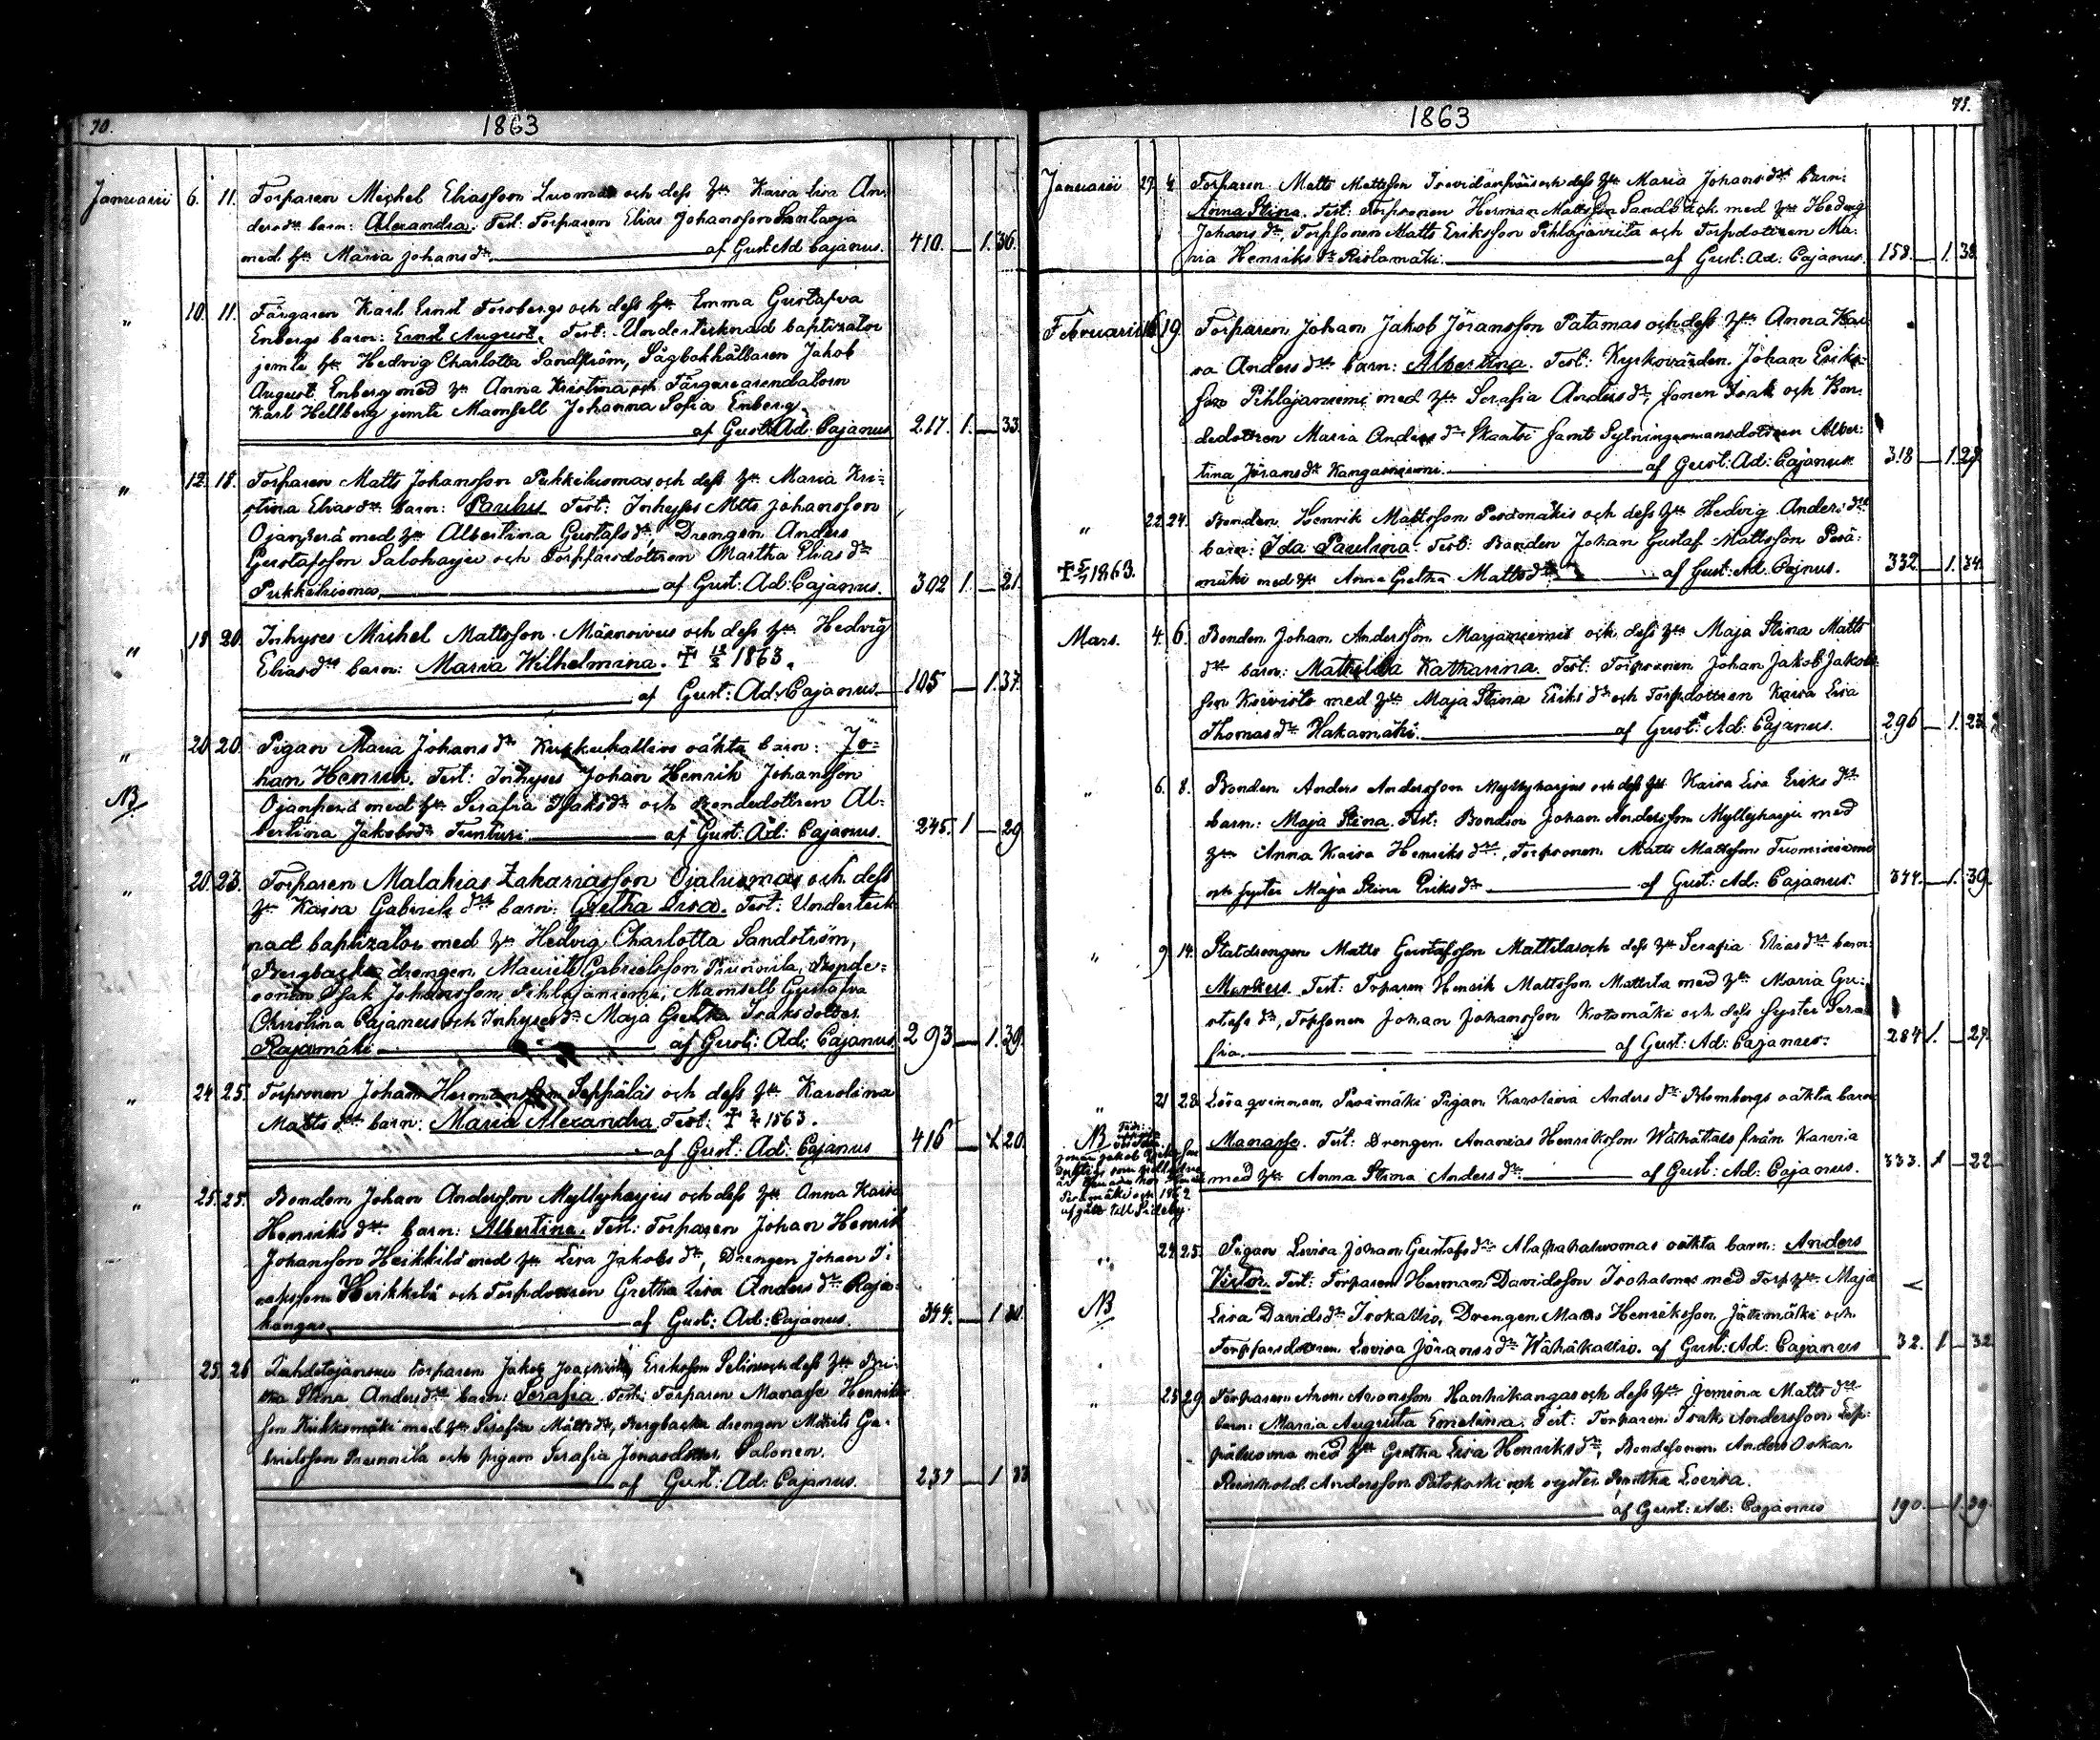 70.
1863
Januarii 6. 11. Torparen Michel Eliasson Luoma och dess h:u Kaisa Lisa An-
dersd:r barn: Alexandra. Test: Torparen Elias Johansson
med h:u Maria Johansd:r af Gust: Ad. Cajanus. 410. — 1. 36.
" 10. 11. Färgaren Karl Ernst Forsbergs och dess h:u Emma Gustafva
Enbergs barn: Ernst August. Test: Undertecknad baptizator
jemte h:u Hedvig Charlotta Sandström, Jakob
August Enberg med h:u Anna Kristina och Färgarearendatorn
Karl Hellberg jemte Mamsell Johanna Sofia Enberg.
af Gust: Ad: Cajanus 217. 1. — 33.
" 12. 18. Torparen Matts Johansson och dess h:u Maria Kri-
stina Eliasd:r barn: Paulus Test: Inhyses Matts Johansson
Ojanperä med h:u Albertina Gustafsd:r, Drengen Anders
Gustafsson Saloharju och Torparedottren Martha Eliasd:r
af Gust: Ad: Cajanus. 302 1. — 21.
" 18 20. Inhyses Michel Mattsson och dess h:u Hedvig
Eliasd:r barn: Maria Wilhelmina. † 1863.
af Gust: Ad: Cajanus. 105 — 1. 37.
" 20 20. Pigan Maria Johansd:r oäkta barn: Jo-
NB han Henrik. Test: Inhyses Johan Henrik Johansson
Ojanperä med h:u Serafia Isaksd:r och Bondedottren Al-
bertina Jakobsd:r Tunturi. af Gust: Ad: Cajanus. 245. 1 — 29
" 20. 23. Torparen Malakias Zakariasson Ojaluomas och dess
h:u Kaisa Gabriels d:r barn: Gretha Lisa. Test: Underteck-
nad baptizator med h:u Hedvig Charlotta Sandström,
drengen Maurits Gabrielsson Bonde-
sonen Isak Johansson Pihlajaniemi, Mamsell Gustafva
Christina Cajanus och Inhysesd:r Maja Gretha Isaksdotter
Rajamäki af Gust: Ad: Cajanus. 293 — 1. 39.
" 24. 25. Torpsonen Johan Hermansson Seppäläs och dess h:u Karolina
Mattsd:r barn: Maria Alexandra Test: † 1863.
af Gust: Ad: Cajanus 416 — 1. 20.
" 25. 25. Bonden Johan Andersson Myllyharjus och dess h:u Anna Kaisa
Henriksd:r barn: Albertina. Test: Torparen Johan Henrik
Johansson Heikkilä med h:u Lisa Jakobsd:r, Drengen Johan I-
saksson Heikkilä och Torpdottren Gretha Lisa Andersd:r Raja-
kangas. af Gust: Ad: Cajanus. 344. — 1
" 25. 26 torparen Jakob Eriksson och dess h:u Bri-
tha Stina Andersd:r barn: Serafia. Test: Torparen Manasse Henriks-
son med h:u Serafia Mattsd:r, drengen Maurits Ga-
brielsson och pigan Serafia Jonasdotter Salonen.
af Gust: Ad: Cajanus. 237 — 1 33
71.
1863
Januarii 27. 4. Torparen Matts Mattsson och dess h:u Maria Johansd:r barn:
Anna Stina. Test: Torpsonen Herman Mattsson Sandbäck med h:u Hedvig
Johansd:r, Torpsonen Matts Eriksson Pihlajaviita och Torpdottren Ma-
ria Henriksd:r Ristamäki. af Gust: Ad: Cajanus. 158. — 1. 38.
Februarii 19. Torparen Johan Jakob Jöransson Patamas och dess h:u Anna Kai-
sa Andersd:r barn: Albertina. Test: Kyrkovärden Johan Eriks-
son Pihlajaniemi med h:u Serafia Andersd:r, sonen Isak och Bon-
dedottren Maria Andersd:r Skantsi samt Sytningsmansdottren Alber-
tina Jöransd:r Kangasniemi. af Gust: Ad: Cajanus. 318 — 1. 29.
" 22. 24. Bonden Henrik Mattsson Perämäkis och dess h:u Hedvig Andersd:r
barn: Ida Paulina. Test: Bonden Johan Gustaf Mattsson Perä-
† 5/7 1863. mäki med h:u Anna Gretha Mattsd:r af Gust: Ad. Cajnus. 332 — 1. 34.
Mars. 4. 6. Bonden Johan Andersson Marjaniemis och dess h:u Maja Stina Matts
d:r barn: Mathilda Katharina. Test: Torpsonen Johan Jakob Jakobs-
son Koivisto med h:u Maja Stina Eriksd:r och Torpdottren Kaisa Lisa
Thomasd:r Hakamäki. af Gust: Ad: Cajanus. 296 — 1. 23
" 6. 8. Bonden Anders Andersson Myllyharjus och dess h:u Kaisa Lisa Eriksd:r
barn: Maja Stina. Test: Bonden Johan Andersson Myllyharju med
h:u Anna Kaisa Henriksd:r, Torpsonen Matts Mattsson Tuominiemi
och syster Maja Stina Eriksd:r af Gust: Ad: Cajanus. 344. — 1. 39.
" 9. 14. Statdrengen Matts Gustafsson Mattilas och dess h:u Serafia Eliasd:r barn:
Markus. Test: Torparen Henrik Mattsson Mattila med h:u Maria Gu-
stafsd:r, Torpsonen Johan Johansson Kotomäki och dess syster Sera-
fia. af Gust: Ad: Cajanus. 284 1. — 27.
" 21 28. Lösa qvinnan Pigan Karolina Andersd:r Blombergs oäkta barn
NB Manasse. Test: Drengen Ananias Henriksson Wähätalo från Karvia
med h:u Anna Stina Andersd:r. af Gust: Ad: Cajanus. 333. 1 — 22
" 24 25. Pigan Lovisa Johan Gustafsd:r oäkta barn: Anders
Victor. Test: Torparen Herman Davidsson med Torp h:u Maja
NB Lisa Davidsd:r Isokallio, Drengen Matts Henriksson och
Torparedottren Lovisa Jöransd:r Wähäkallio. af Gust: Ad: Cajanus 32. 1 — 32
" 25 29. Torparen Aron Aronsson Hanhikangas och dess h:u Jemina Mattsd:r
barn: Maria Augusta Emelinia. Test: Torparen Isak Andersson Lep-
päluoma med h:u Gretha Lisa Henriksd:r, Bondesonen Anders Oskar
Reinhold Andersson Patokoski och syster Martha Lovisa.
af Gust: Ad: Cajanus 190. — 1. 39.